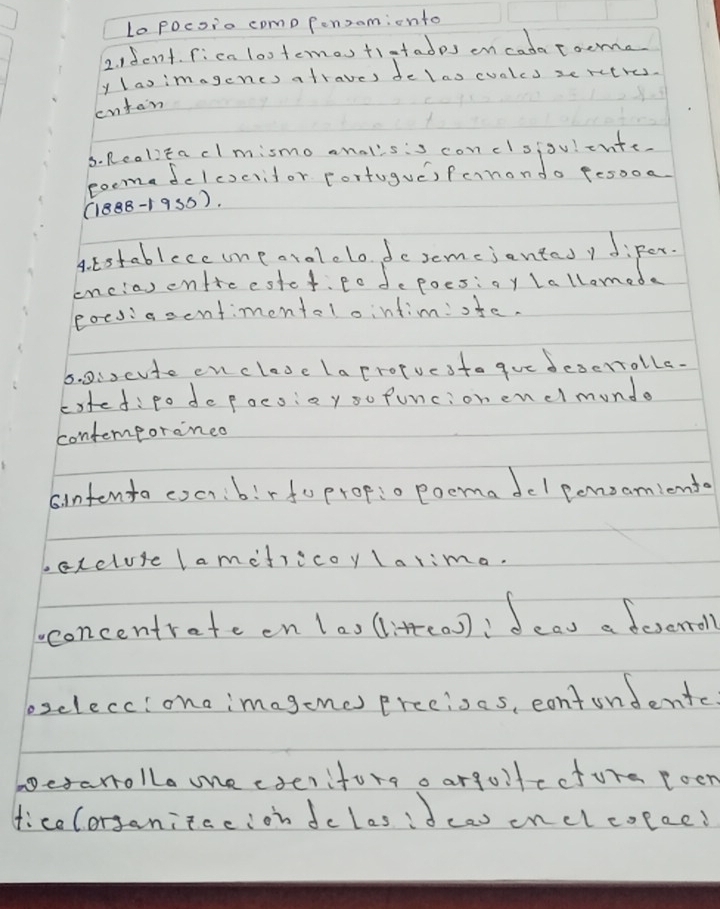 La poesia como pensamiento
2. Identifica los temas tratados en cada poema
y las imagenes a traves de las cuales se repres-
entan
3. Realiza el mismo analisis con el siguiente-
poema del escritor portugués Fernando Pessoa
(1888-1935).
4. Establece un paralelo de semejantas y difer-
encias entre este tipo de poesia y la llamada
poesia sentimental o intimista.
5. Discute en clase la propuesta que desarrolla-
este tipo de poesia y su funcion en el mundo
contemporáneo
6. Intenta escribir tu propio poema del pensamiento
. excluye la métrica y la rima.
. concentrate en las (litreas) ideas a desarroll
. selecciona imagenes precisas, contundente
. Desarrolla una escritura o arquitectura poen
tica (organización de las ideas en el espaci